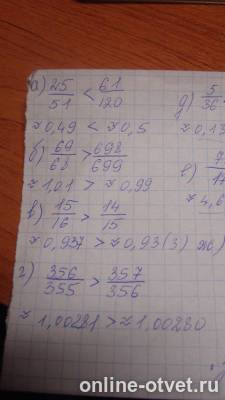 а) 25/51 < 61/120
≈ 0,49 < ≈ 0,5
б) 69/68 > 698/699
≈ 1,01 > ≈ 0,99
в) 15/16 > 14/15
≈ 0,937 > ≈ 0,93(3)
г) 356/355 > 357/356
≈ 1,00281 > ≈ 1,00280
д) 5/36
≈ 0,13
е)
≈ 4,6
ж)
online-otvet.ru